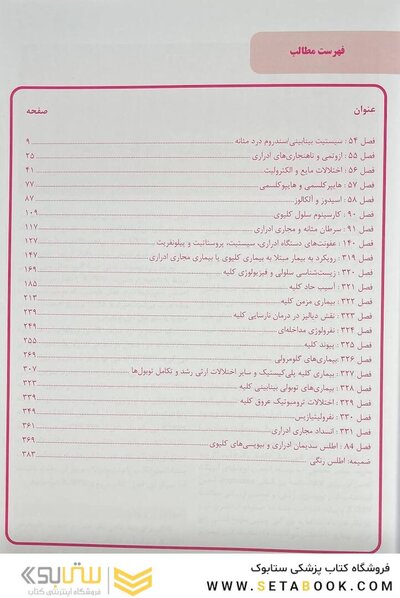 فهرست مطالب
عنوان
صفحه
فصل ۵۴ : سیستیت بینابینی/سندروم درد مثانه ۹
فصل ۵۵ : ازوتمی و ناهنجاری‌های ادراری ۲۵
فصل ۵۶ : اختلالات مایع و الکترولیت ۴۱
فصل ۵۷ : هایپرکلسمی و هایپوکلسمی ۷۷
فصل ۵۸ : اسیدوز و آلکالوز ۸۷
فصل ۹۰ : کارسینوم سلول کلیوی ۱۰۹
فصل ۹۱ : سرطان مثانه و مجاری ادراری ۱۱۷
فصل ۱۴۰ : عفونت‌های دستگاه ادراری، سیستیت، پروستاتیت و پیلونفریت ۱۲۷
فصل ۳۱۹ : رویکرد به بیمار مبتلا به بیماری کلیوی یا بیماری مجاری ادراری ۱۴۷
فصل ۳۲۰ : زیست‌شناسی سلولی و فیزیولوژی کلیه ۱۶۹
فصل ۳۲۱ : آسیب حاد کلیه ۱۸۵
فصل ۳۲۲ : بیماری مزمن کلیه ۲۱۳
فصل ۳۲۳ : نقش دیالیز در درمان نارسایی کلیه ۲۳۹
فصل ۳۲۴ : نفرولوژی مداخله‌ای ۲۴۹
فصل ۳۲۵ : پیوند کلیه ۲۵۵
فصل ۳۲۶ بیماری‌های گلومرولی ۲۶۹
فصل ۳۲۷ : بیماری کلیه پلی‌کیستیک و سایر اختلالات ارثی رشد و تکامل توبول‌ها ۳۰۷
فصل ۳۲۸ : بیماری‌های توبولی بینابینی کلیه ۳۲۳
فصل ۳۲۹ : اختلالات ترومبوتیک عروق کلیه ۳۳۹
فصل ۳۳۰ : نفرولیتیازیس ۳۴۹
فصل ۳۳۱ : انسداد مجاری ادراری ۳۶۱
فصل A4 : اطلس سدیمان ادراری و بیوپسی‌های کلیوی ۳۶۹
ضمیمه: اطلس رنگی ۳۸۳
فروشگاه کتاب پزشکی ستابوک
WWW.SETABOOK.COM
ستابوک
فروشگاه اینترنتی کتاب